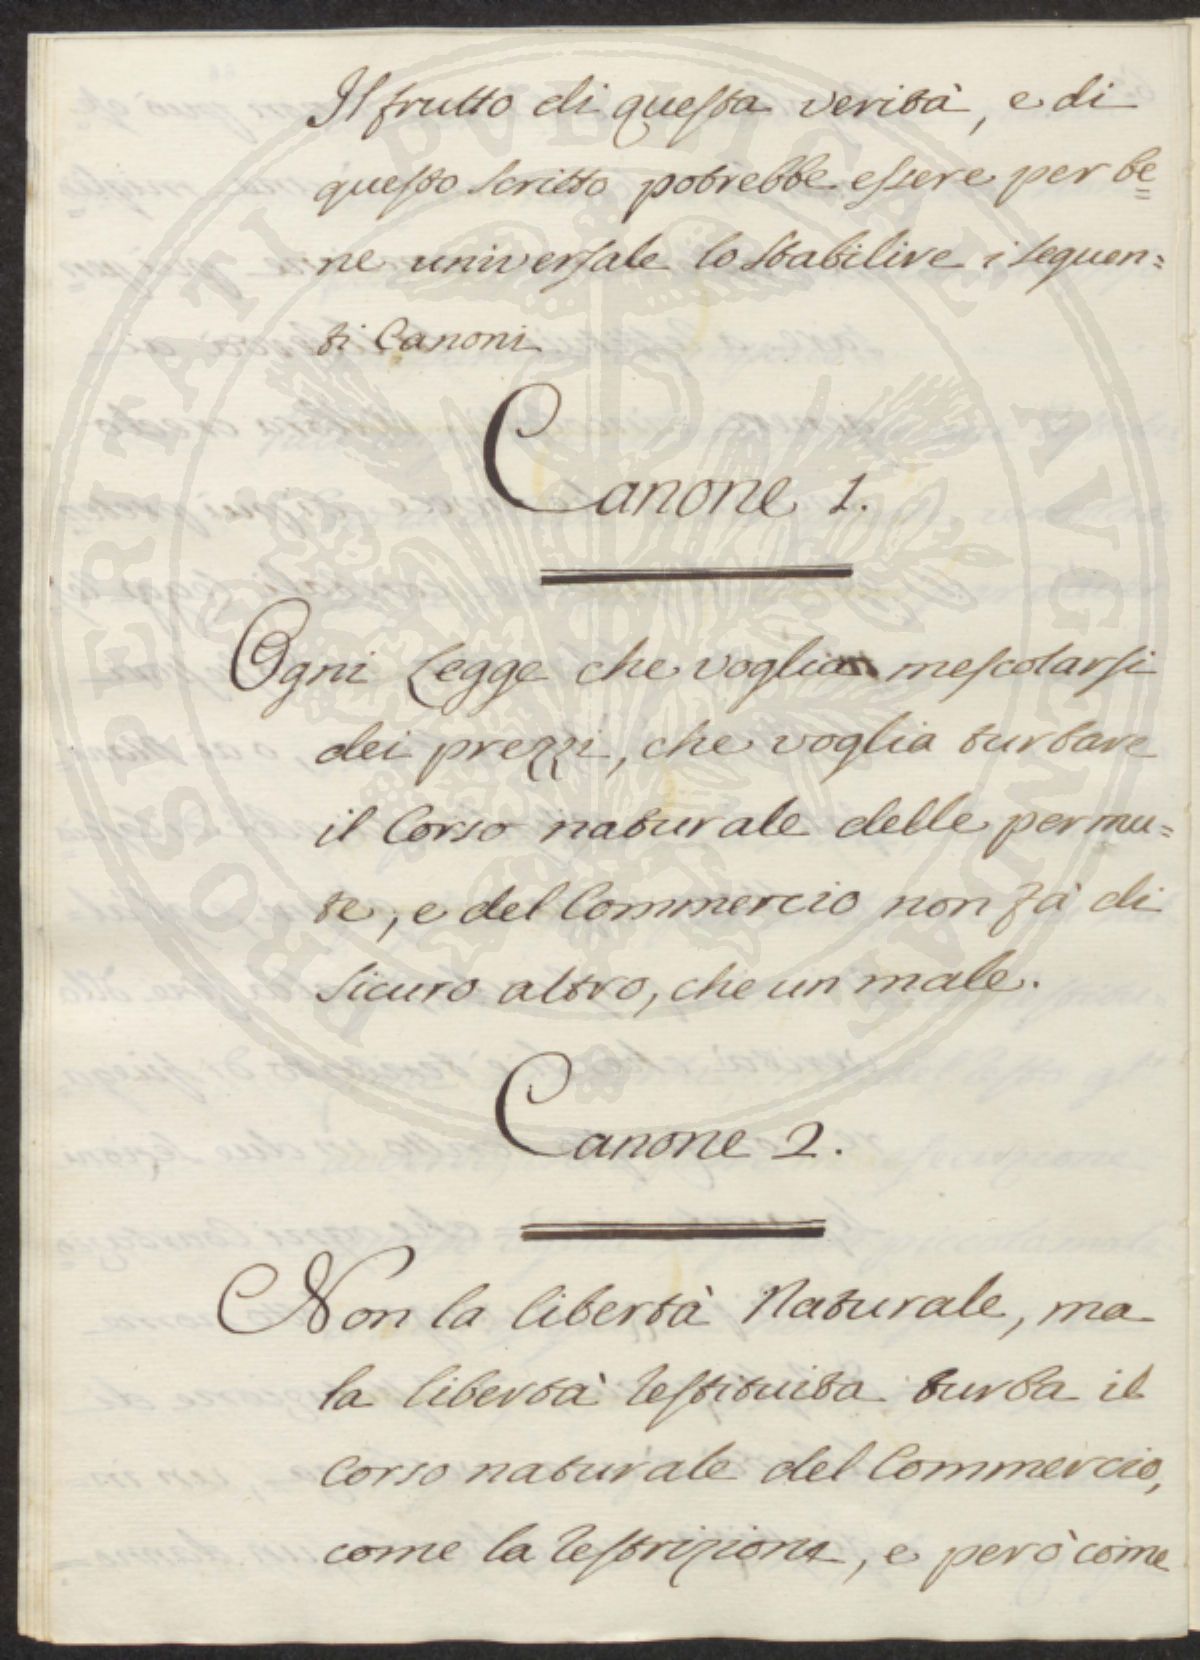 Il frutto di questa verità, e di
questo scritto potrebbe essere per be=
ne universale lo stabilire i seguen=
ti Canoni
Canone 1.
Ogni Legge che voglia mescolarsi
dei prezzi, che voglia turbare
il Corso naturale delle permu=
te, e del Commercio non fà di
sicuro altro, che un male.
Canone 2.
Non la libertà Naturale, ma
la libertà restituita turba il
Corso naturale del Commercio,
come la restrizione, e però come
PROSPERITATI PVBLICAE AVGENDAE